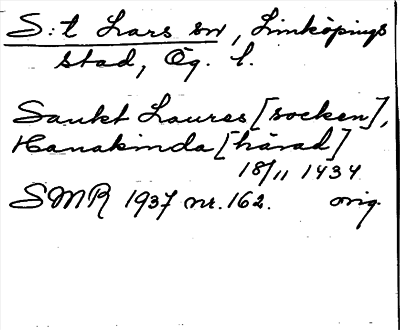 S:t Lars sn, Linköpings
stad, Ög. l.
Sankt Laures [socken],
Hanakinda [härad]
18/11 1434
SMR 1937 nr. 162. orig.